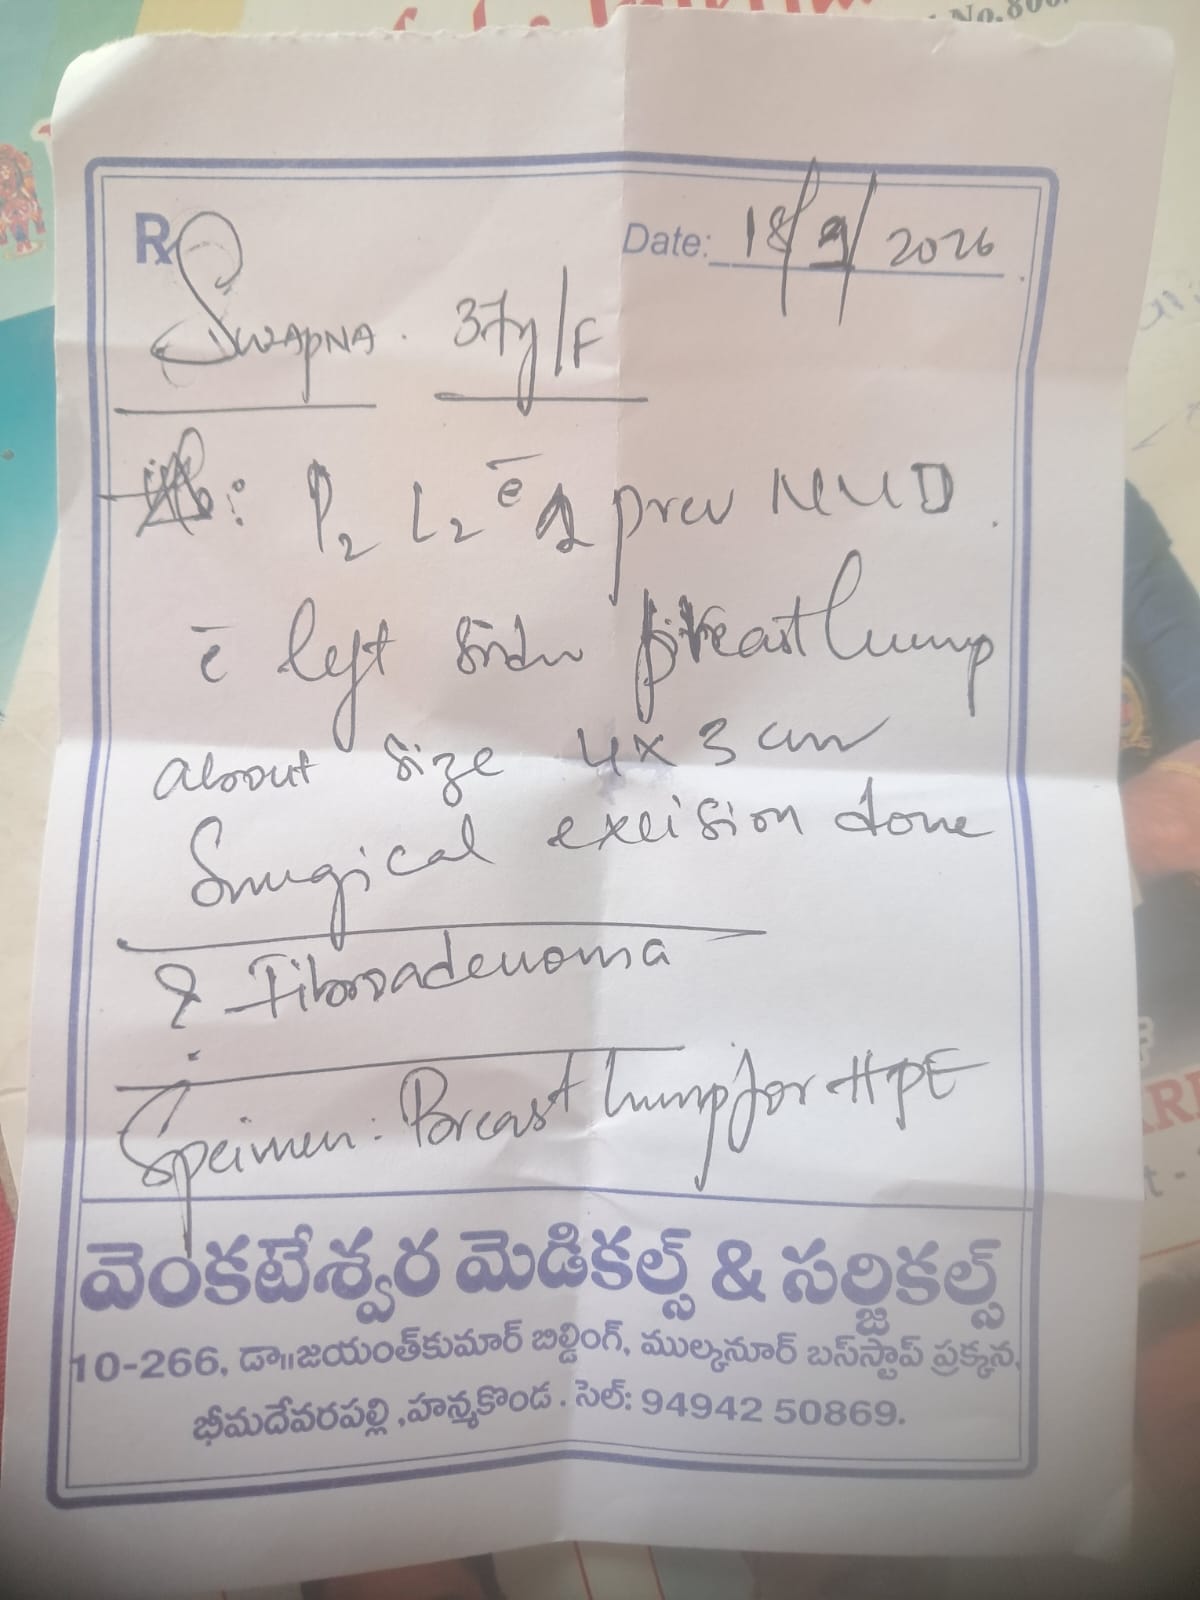 No.
Rx
Date: 18/9/2026
Swapna. 37y/F
: P2 L2 c̄ 2 prev NVD.
c̄ left breast lump
about size 4x3 cm
Surgical excision done
? Fibroadenoma
Specimen: Breast lump for HPE
వెంకటేశ్వర మెడికల్స్ & సర్జికల్స్
10-266, డా॥జయంత్‌కుమార్ బిల్డింగ్, ముల్కనూర్ బస్‌స్టాప్ ప్రక్కన,
భీమదేవరపల్లి, హన్మకొండ. సెల్: 94942 50869.